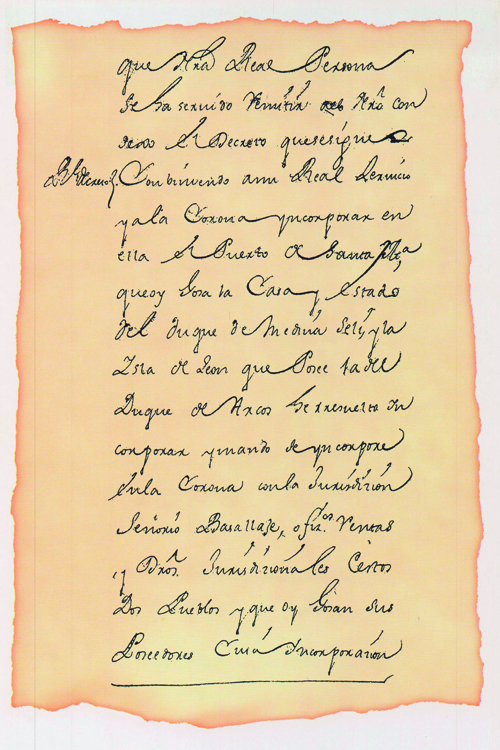 que Vtrã Real Persona
se ha seruido Remitir del dho con
sexo el Decreto que se sigue
Rl. Decreto. Conbiniendo a mi Real Seruicio
y a la Corona yncorporar en
ella el Puerto de Santa Mra,
que oy Gosa la Casa y estado
del duque de Medina Seli, y la
Isla de Leon que Posee la del
Duque de Arcos he rresuelto In
corporar y mando se yncorpore
en la Corona con la Jurisdizion
señorio Basallaje, ofizos. Rentas
y Dros. Jurisdizionales Ćestos
Dos Pueblos y que oy Gosan sus
Poseedores Cuia Incorporazion